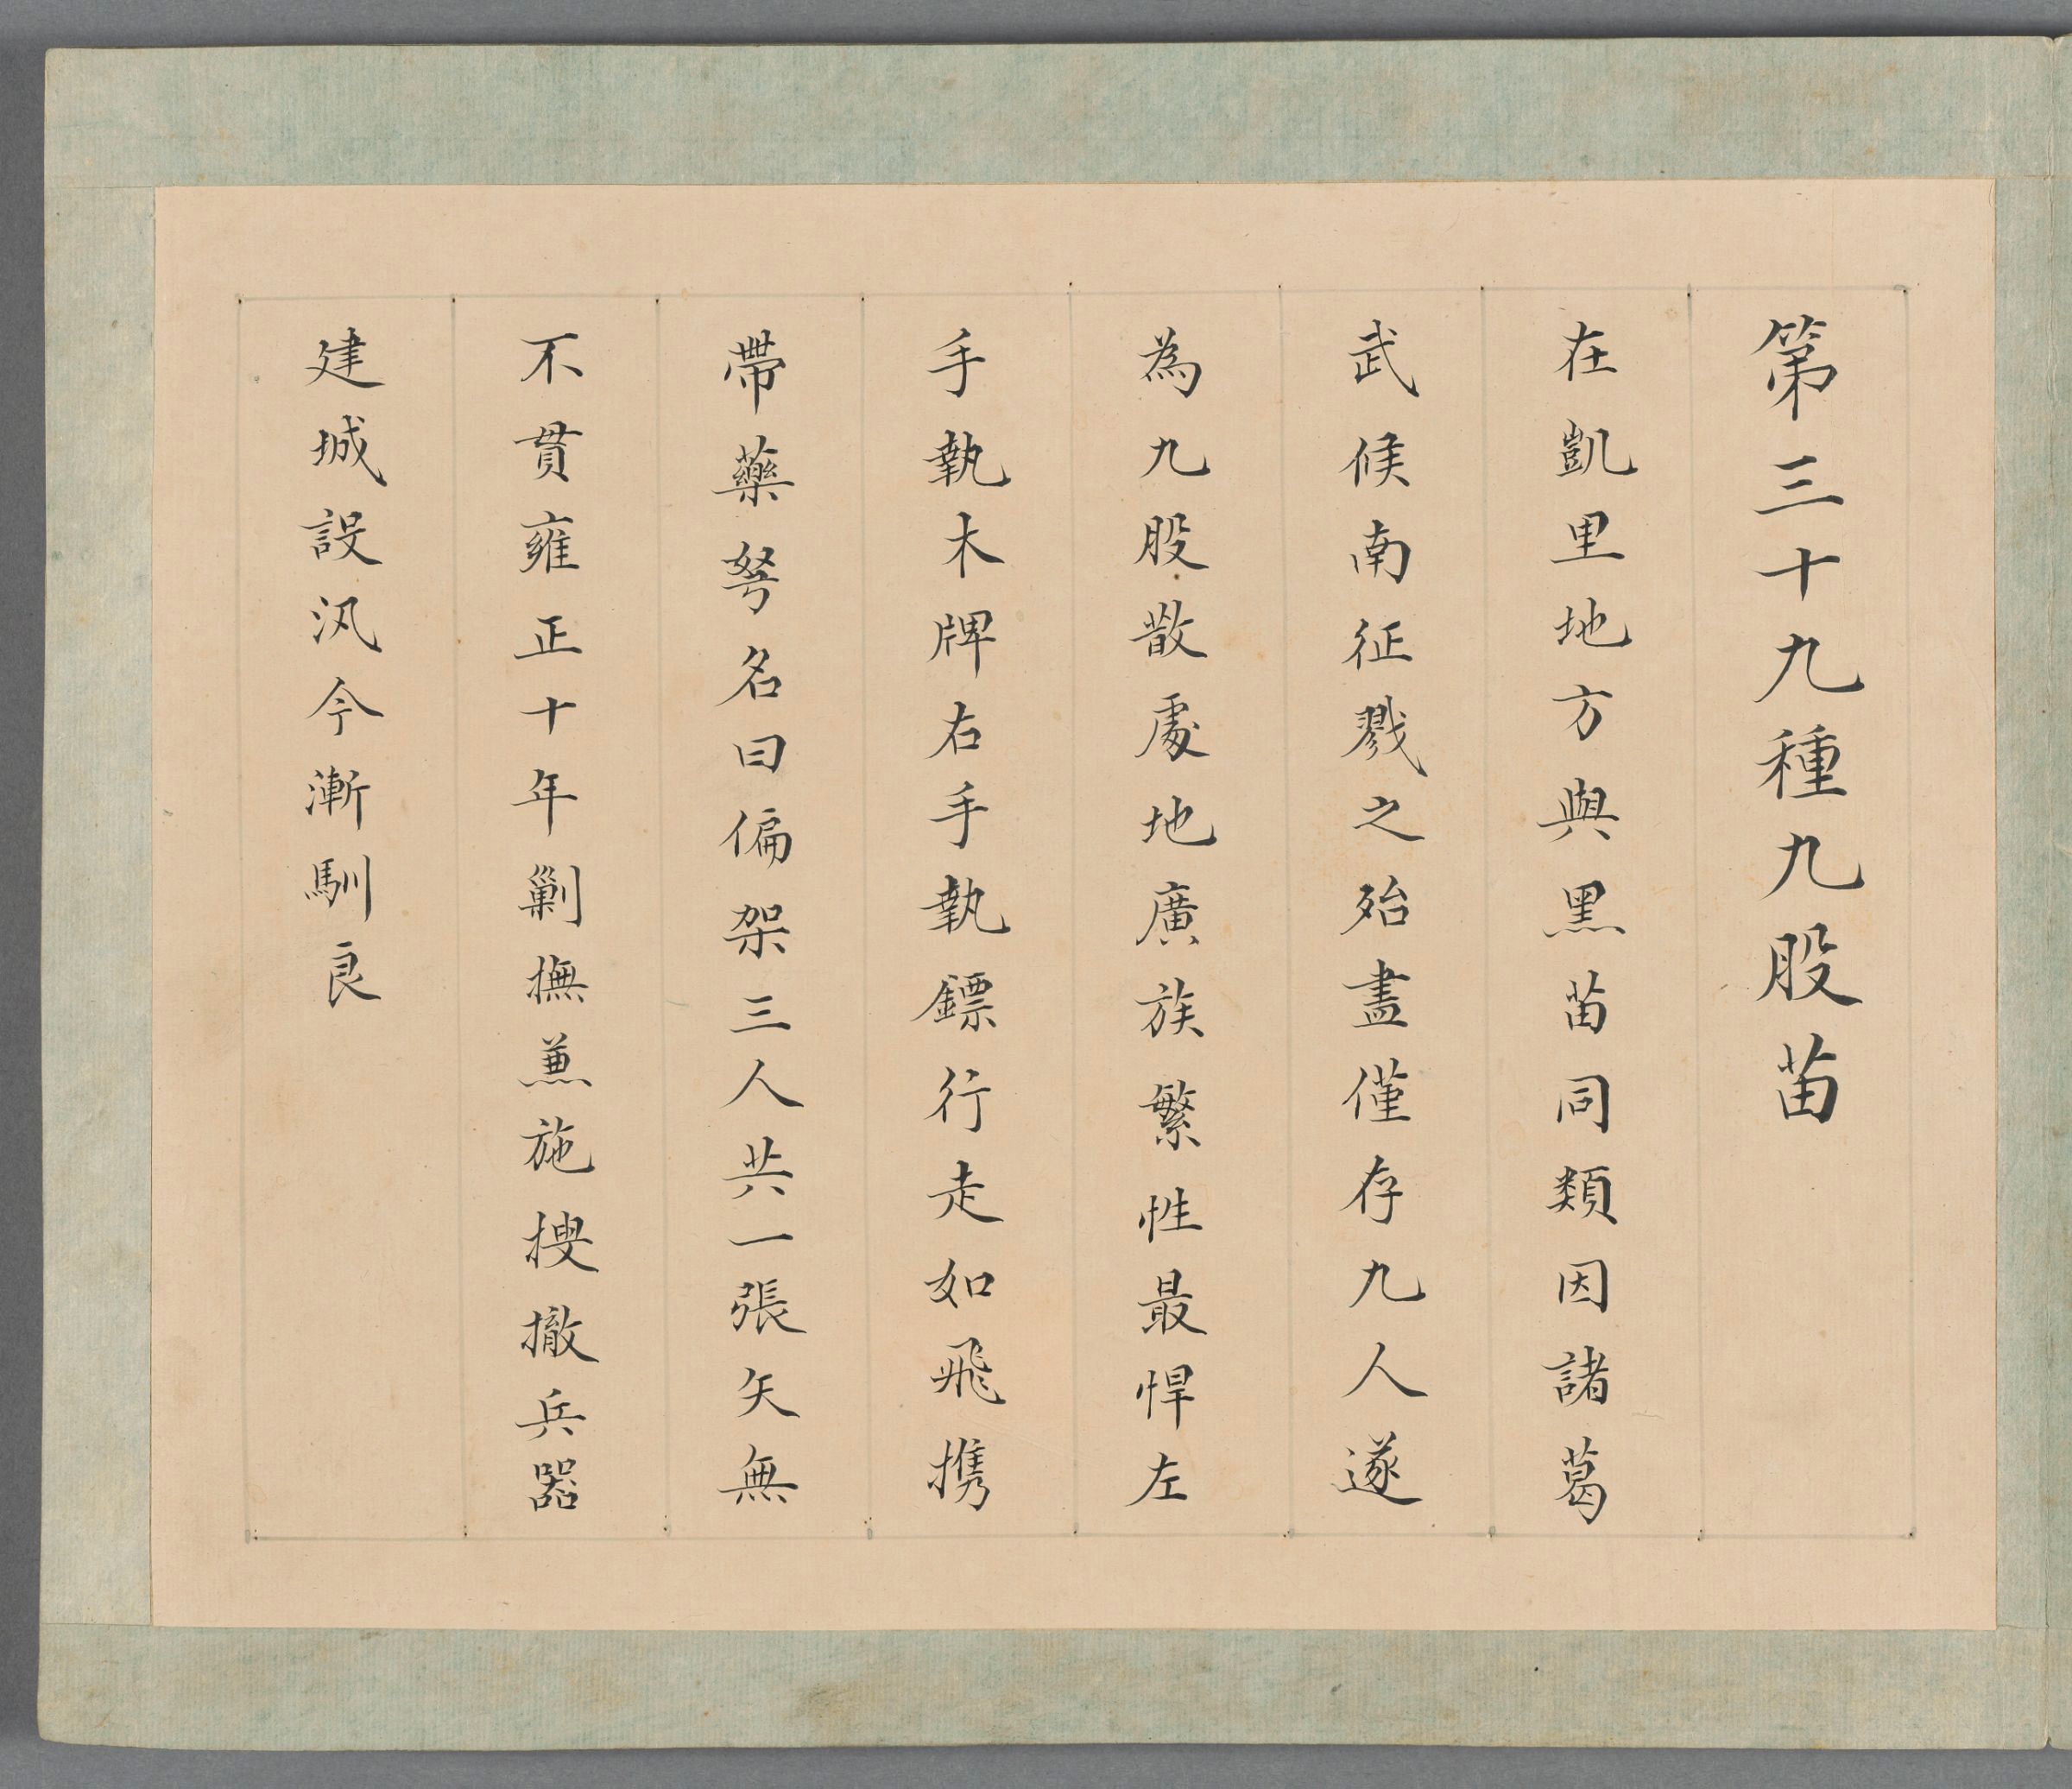 第三十九種九股苗
在凱里地方與黑苗同類因諸葛
武候南征戮之殆盡僅存九人遂
為九股散處地廣族繁性最悍左
手執木牌右手執鏢行走如飛携
帶藥弩名曰偏架三人共一張矢無
不貫雍正十年剿撫兼施搜撤兵器
建城設汛今漸馴良